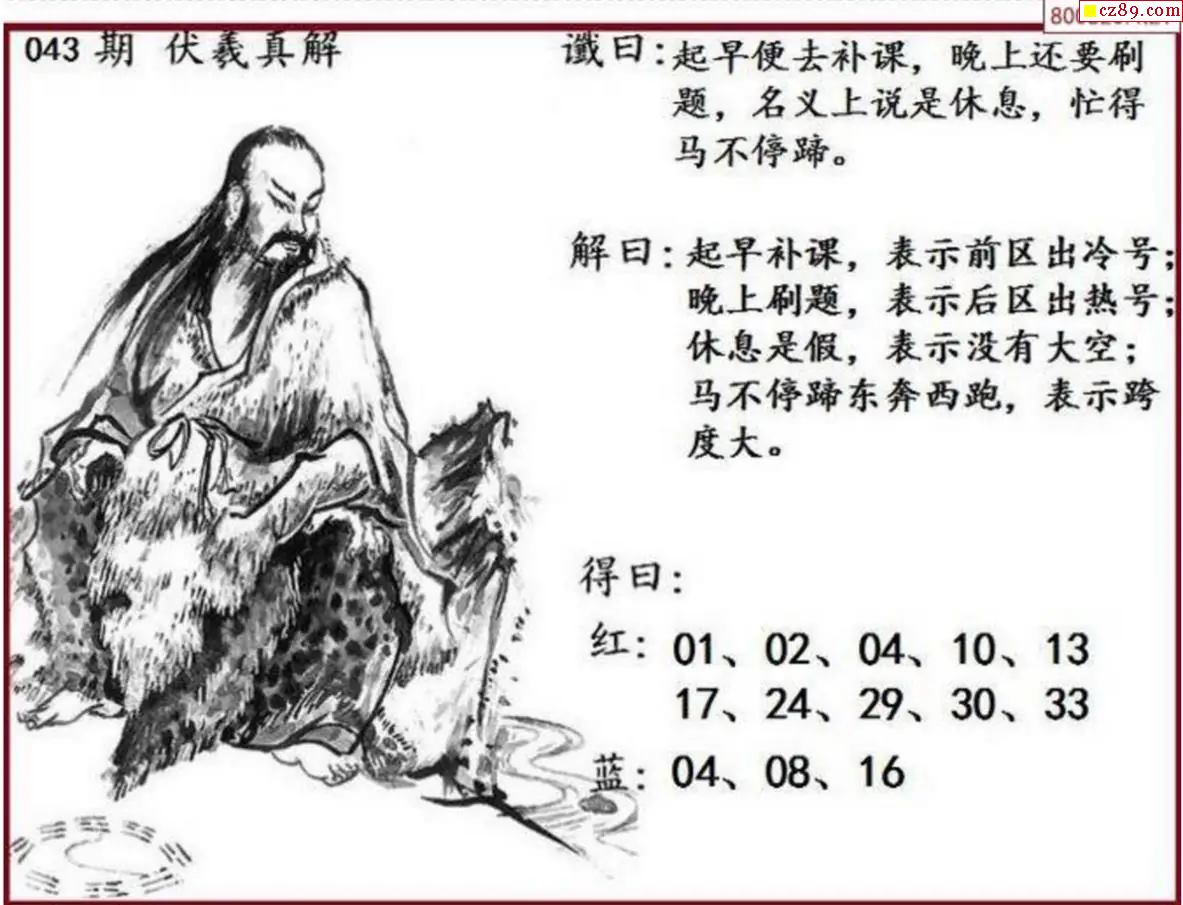 cz89.com
043期 伏羲真解
谶曰:起早便去补课，晚上还要刷
题，名义上说是休息，忙得
马不停蹄。
解曰:起早补课，表示前区出冷号;
晚上刷题，表示后区出热号;
休息是假，表示没有大空;
马不停蹄东奔西跑，表示跨
度大。
得曰:
红: 01、02、04、10、13
17、24、29、30、33
蓝: 04、08、16